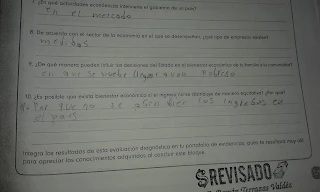 7. ¿En qué actividades económicas interviene el gobierno de tu país?
en el mercado
8. De acuerdo con el sector de la economía en el que se desempeñan, ¿qué tipo de empresas existen?
medidas
9. ¿De qué manera pueden influir las decisiones del Estado en el bienestar económico de tu familia y tu comunidad?
en que se puede llegar a una pobreza
10. ¿Es posible que exista bienestar económico si el ingreso no se distribuye de manera equitativa? ¿Por qué?
Por que no se los ingresos en
el país
Integra los resultados de esta evaluación diagnóstica en tu portafolio de evidencias, pues te resultará muy útil
para apreciar los conocimientos adquiridos al concluir este bloque.
REVISADO
Terrazas Valdés